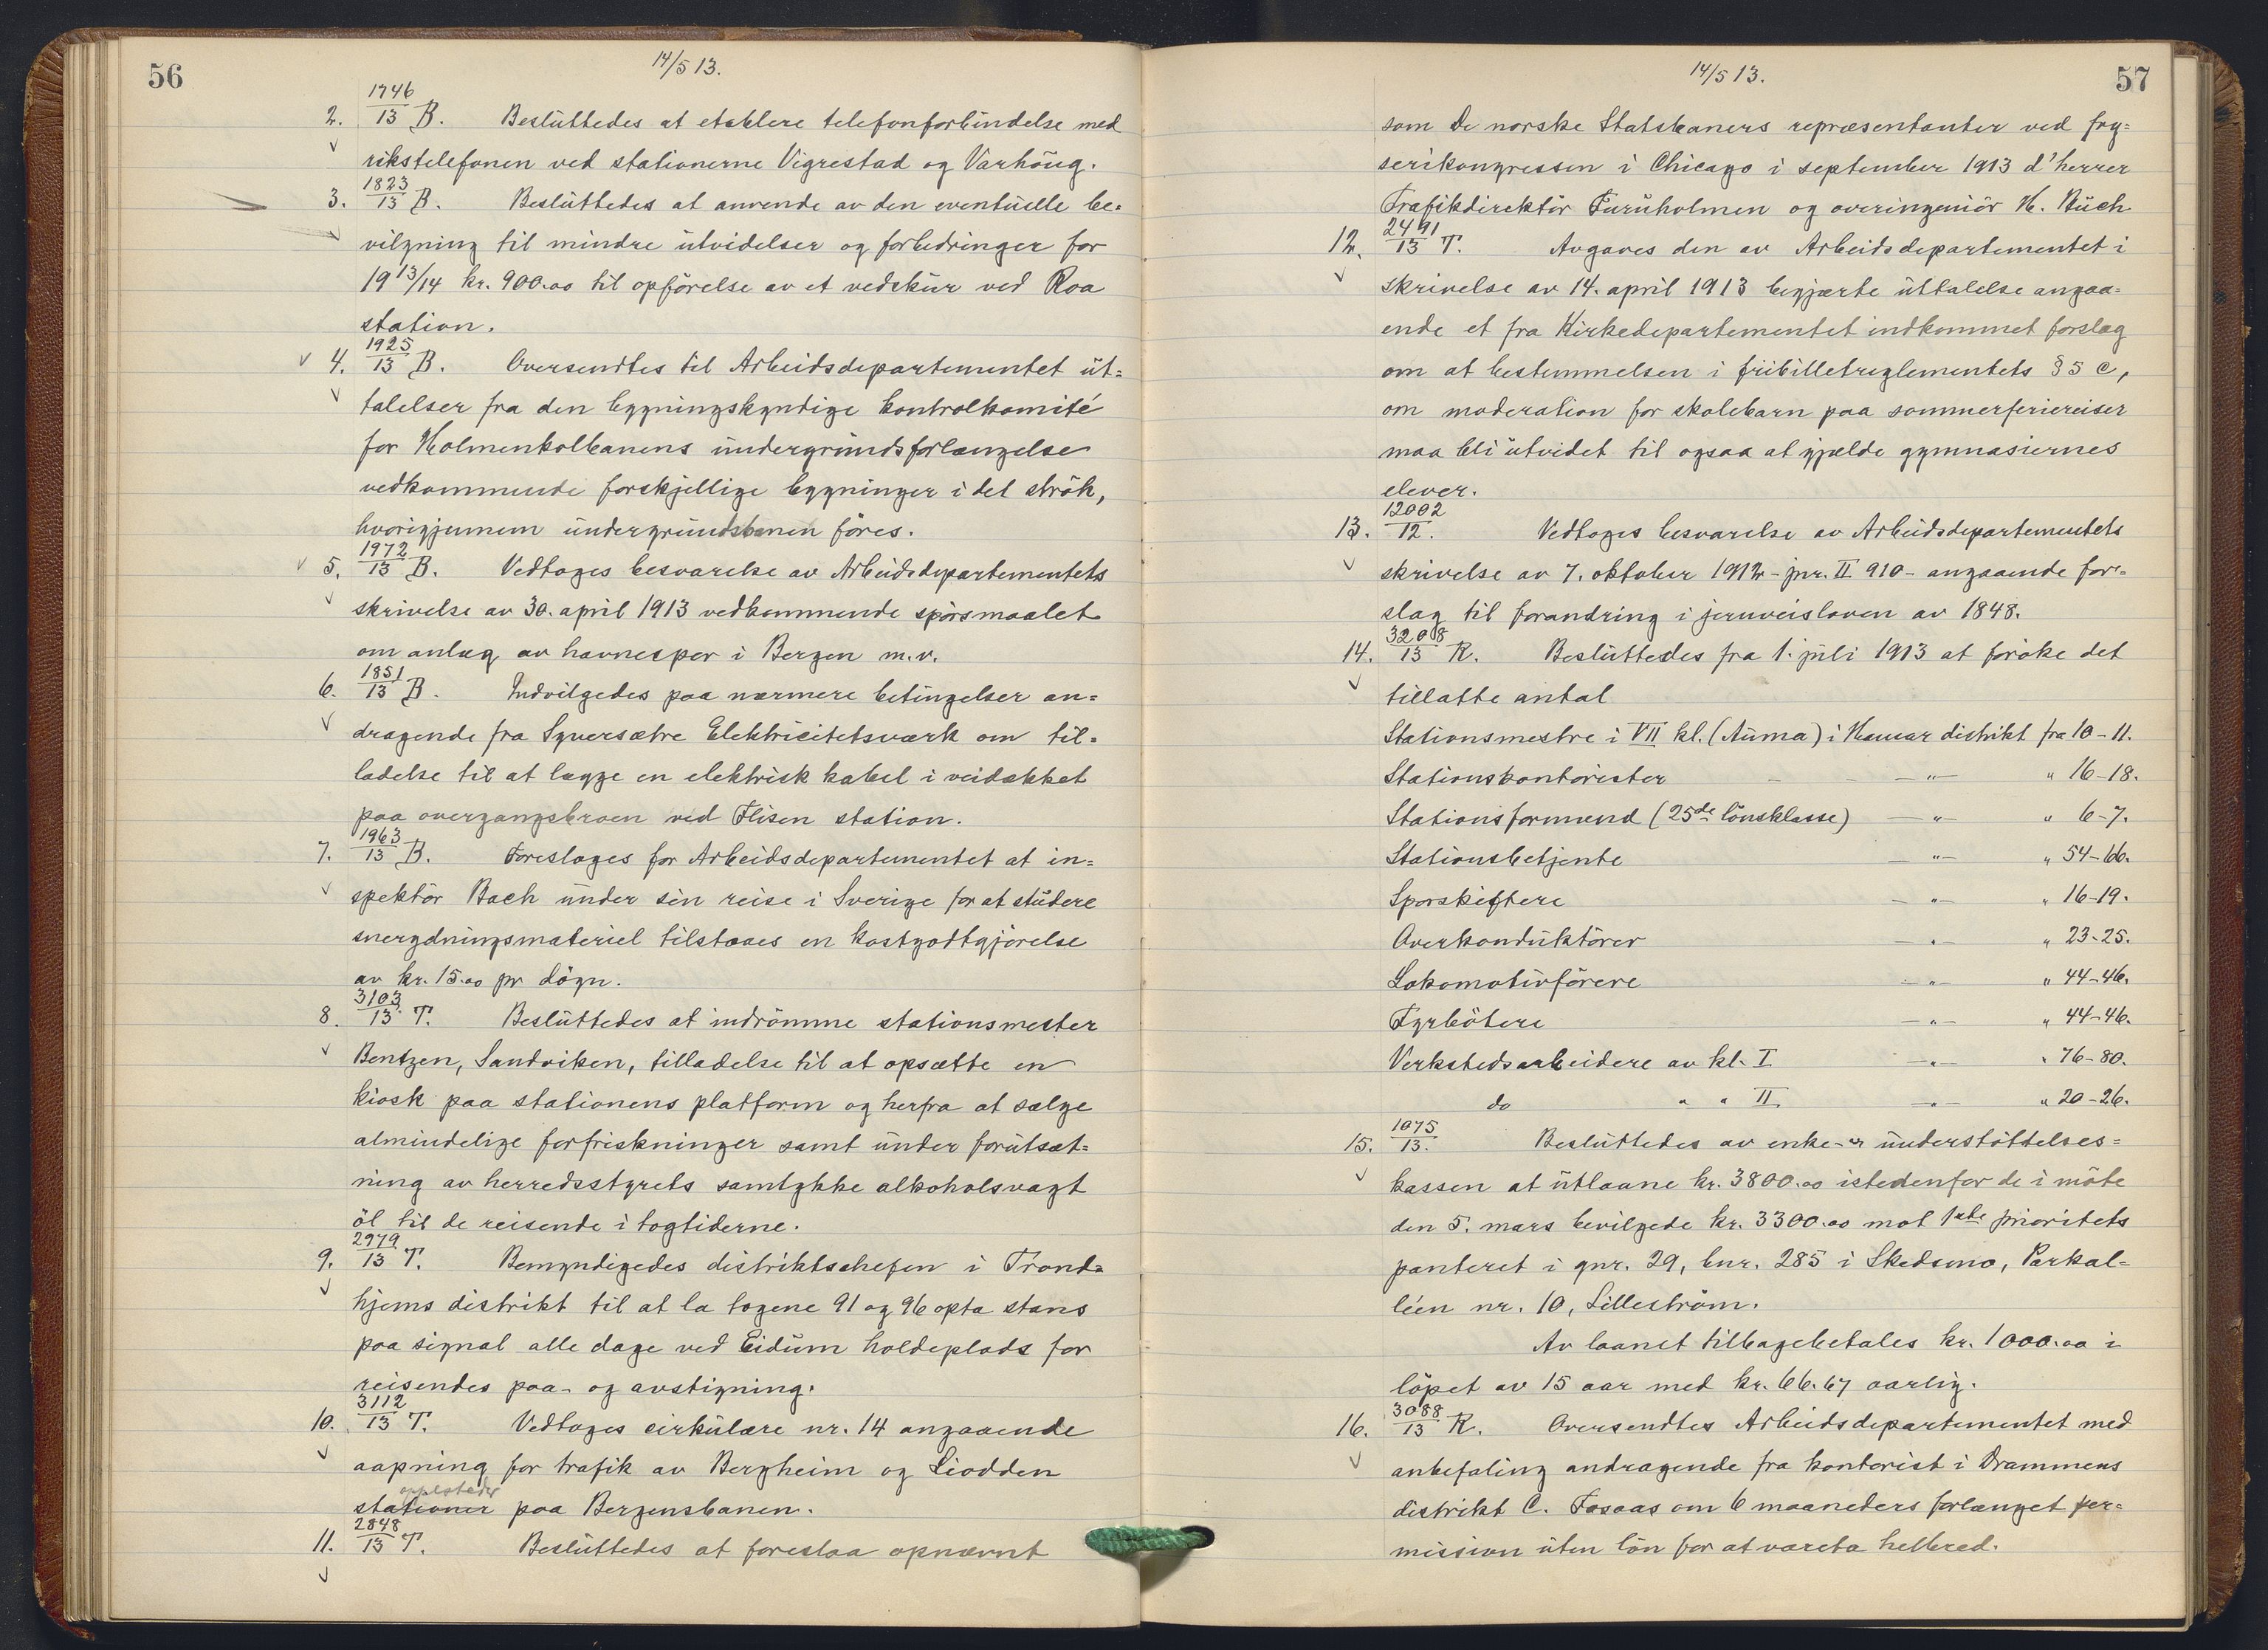 56
14/5 13.
2. 1746/13 B. Besluttedes at etablere telefonforbindelse med
rikstelefonen ved stationerne Vigrestad og Varhaug.
3. 1823/13 B. Besluttedes at anvende av den eventuelle be=
vilgning til mindre utvidelser og forbedringer for
1913/14 kr. 900.00 til opförelse av et vedskur ved Roa
station.
4. 1925/13 B. Oversendtes til Arbeidsdepartementet ut=
talelser fra den bygningskyndige kontrolkomité
for Holmenkolbanens undergrundsforlængelse
vedkommende forskjellige bygninger i det strök,
hvorigjennem undergrundsbanen föres.
5. 1972/13 B. Vedtoges besvarelse av Arbeidsdepartementets
skrivelse av 30. april 1913 vedkommende spörsmaalet
om anlæg av havnespor i Bergen m.v.
6. 1851/13 B. Indvilgedes paa nærmere betingelser an=
dragende fra Syversætre Elektricitetsværk om til=
ladelse til at lægge en elektrisk kabel i veidækket
paa overgangsbroen ved Flisen station.
7. 1963/13 B. Foresloges for Arbeidsdepartementet at in=
spektör Bach under sin reise i Sverige for at studere
snerydningsmateriel tilstaaes en kostgodtgjörelse
av kr. 15.00 pr dögn.
8. 3103/13 T. Besluttedes at indrömme stationsmester
Bentzen, Sandviken, tilladelse til at opsætte en
kiosk paa stationens platform og herfra at sælge
almindelige forfriskninger samt under forutsæt=
ning av herredsstyrets samtykke alkoholsvagt
öl til de reisende i togtiderne.
9. 2979/13 T. Bemyndigedes distriktschefen i Trond=
hjems distrikt til at la togene 91 og 96 opta stans
paa signal alle dage ved Eidum holdeplads for
reisendes paa- og avstigning.
10. 3112/13 T. Vedtoges cirkulære nr. 14 angaaende
aapning for trafik av Bergheim og Liodden
stationer paa Bergensbanen.
11. 2848/13 T. Besluttedes at foreslaa opnævnt
57
14/5 13.
som De norske Statsbaners repræsentanter ved fry=
serikongressen i Chicago i september 1913 d'herrer
Trafikdirektör Furuholmen og overingeniör H. Buch
12. 2491/13 T. Avgaves den av Arbeidsdepartementet i
skrivelse av 14. april 1913 begjærte uttalelse angaa=
ende et fra Kirkedepartementet indkommet forslag
om at bestemmelsen i fribilletreglementets § 5 c,
om moderation for skolebarn paa sommerferiereiser
maa bli utvidet til ogsaa at gjælde gymnasiernes
elever.
13. 12002/12. Vedtoges besvarelse av Arbeidsdepartementets
skrivelse av 7. oktober 1912 - jnr. II 910 - angaaende for=
slag til forandring i jernveisloven av 1848.
14. 3208/13 R. Besluttedes fra 1. juli 1913 at foröke det
tillatte antal
Stationsmestre i VII kl. (Auma) i Hamar distrikt fra 10-11.
Stationskontorister - — " — " 16-18.
Stationsformænd (25de lönsklasse) — " — " 6-7.
Stationsbetjente — " — " 54-66.
Sporskiftere — " — " 16-19.
Overkonduktörer — " — " 23-25.
Lokomotivförere — " — " 44-46.
Fyrbötere — " — " 44-46.
Verkstedsarbeidere av kl. I — " — " 76-80.
do " " II — " — " 20-26.
15. 1075/13. Besluttedes av enke- og understöttelses=
kassen at utlaane kr. 3800.00 istedenfor de i möte
den 5. mars bevilgede kr. 3300.00 mot 1ste prioritets
panteret i gnr. 29, bnr. 285 i Skedsmo, Parkal=
léen nr. 10, Lilleström.
Av laanet tilbagebetales kr. 1000.00 i
löpet av 15 aar med kr. 66.67 aarlig.
16. 3088/13 R. Oversendtes Arbeidsdepartementet med
anbefaling andragende fra kontorist i Drammens
distrikt C. Fosaas om 6 maaneders forlænget per=
mission uten lön for at vareta helbred.